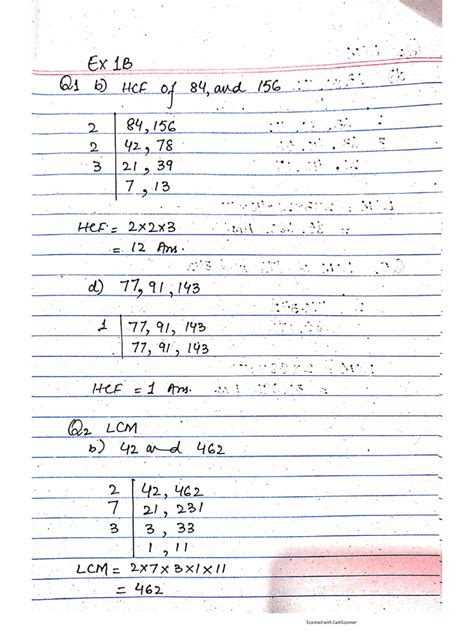 Ex 1B
Q1 b) HCF of 84, and 156
2 | 84, 156
2 | 42, 78
3 | 21, 39
7, 13
HCF = 2×2×3
= 12 Ans.
d) 77, 91, 143
1 | 77, 91, 143
77, 91, 143
HCF = 1 Ans.
Q2 LCM
b) 42 and 462
2 | 42, 462
7 | 21, 231
3 | 3, 33
1, 11
LCM = 2×7×3×1×11
= 462
Scanned with CamScanner